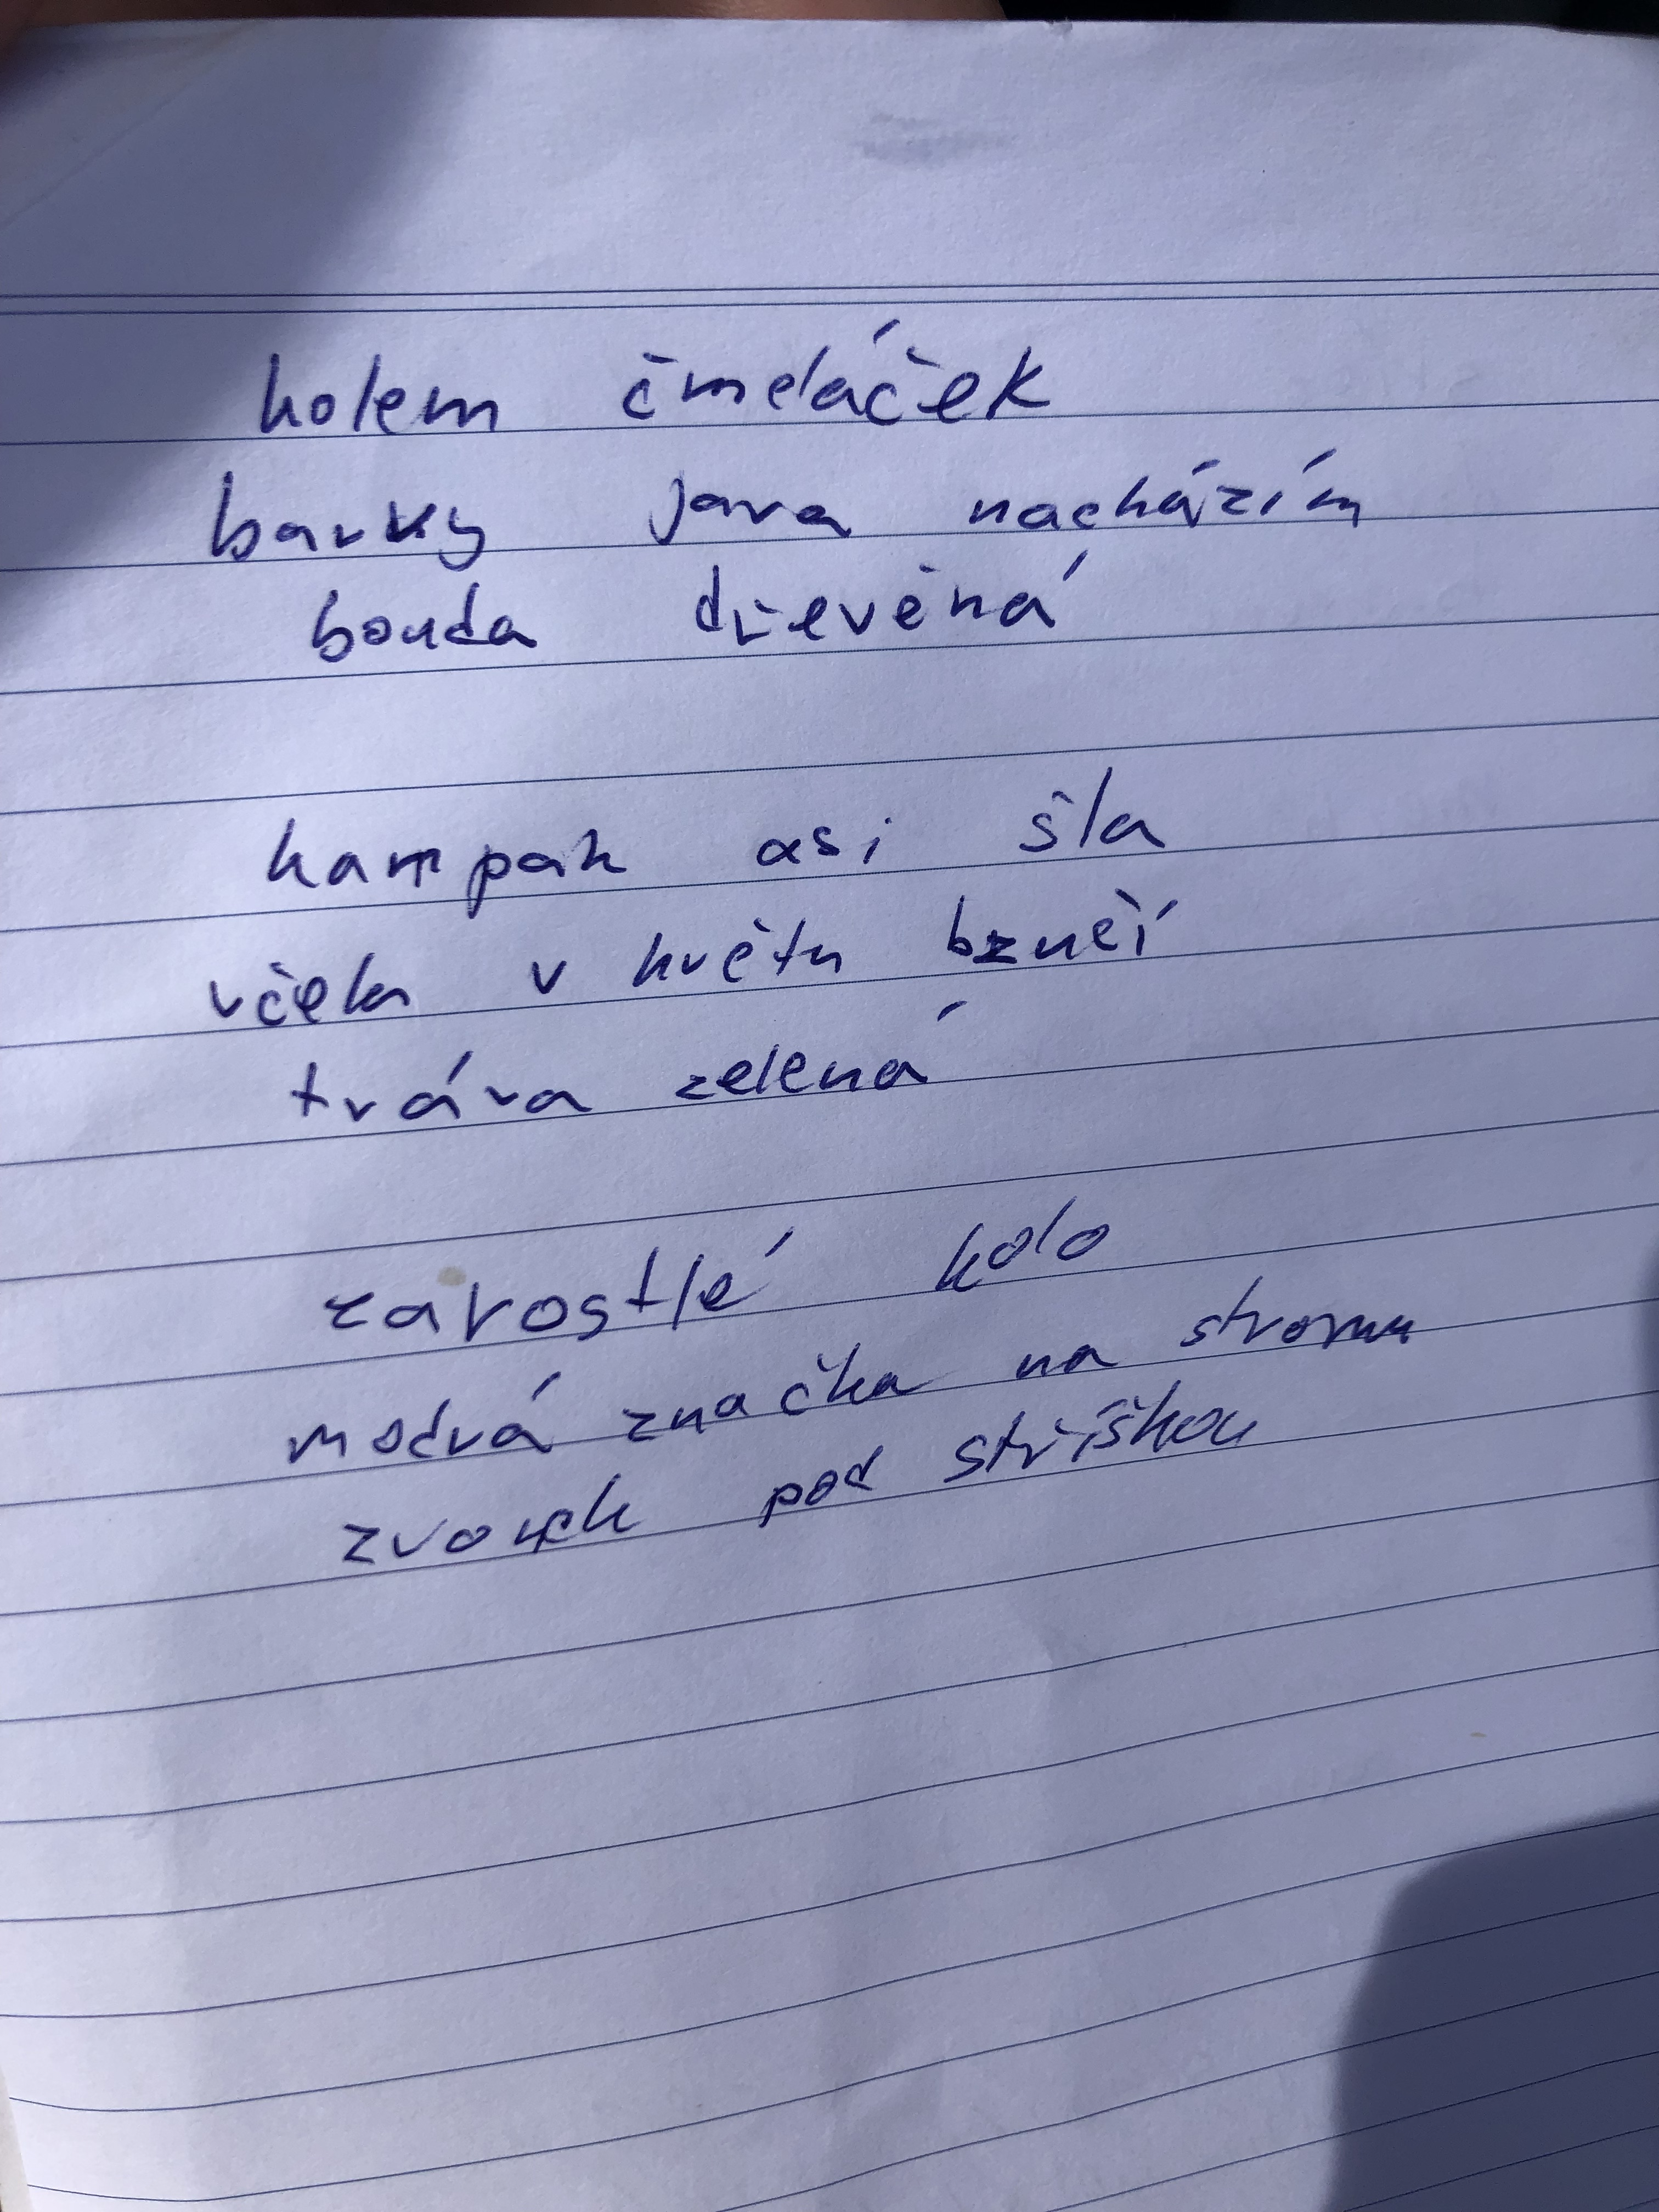 kolem čmeláček
barvy jara nacházím
bouda dřevěná
kampak asi šla
včela v květu bzučí
tráva zelená
zarostlé kolo
modrá značka na stromu
zvonek pod stříškou